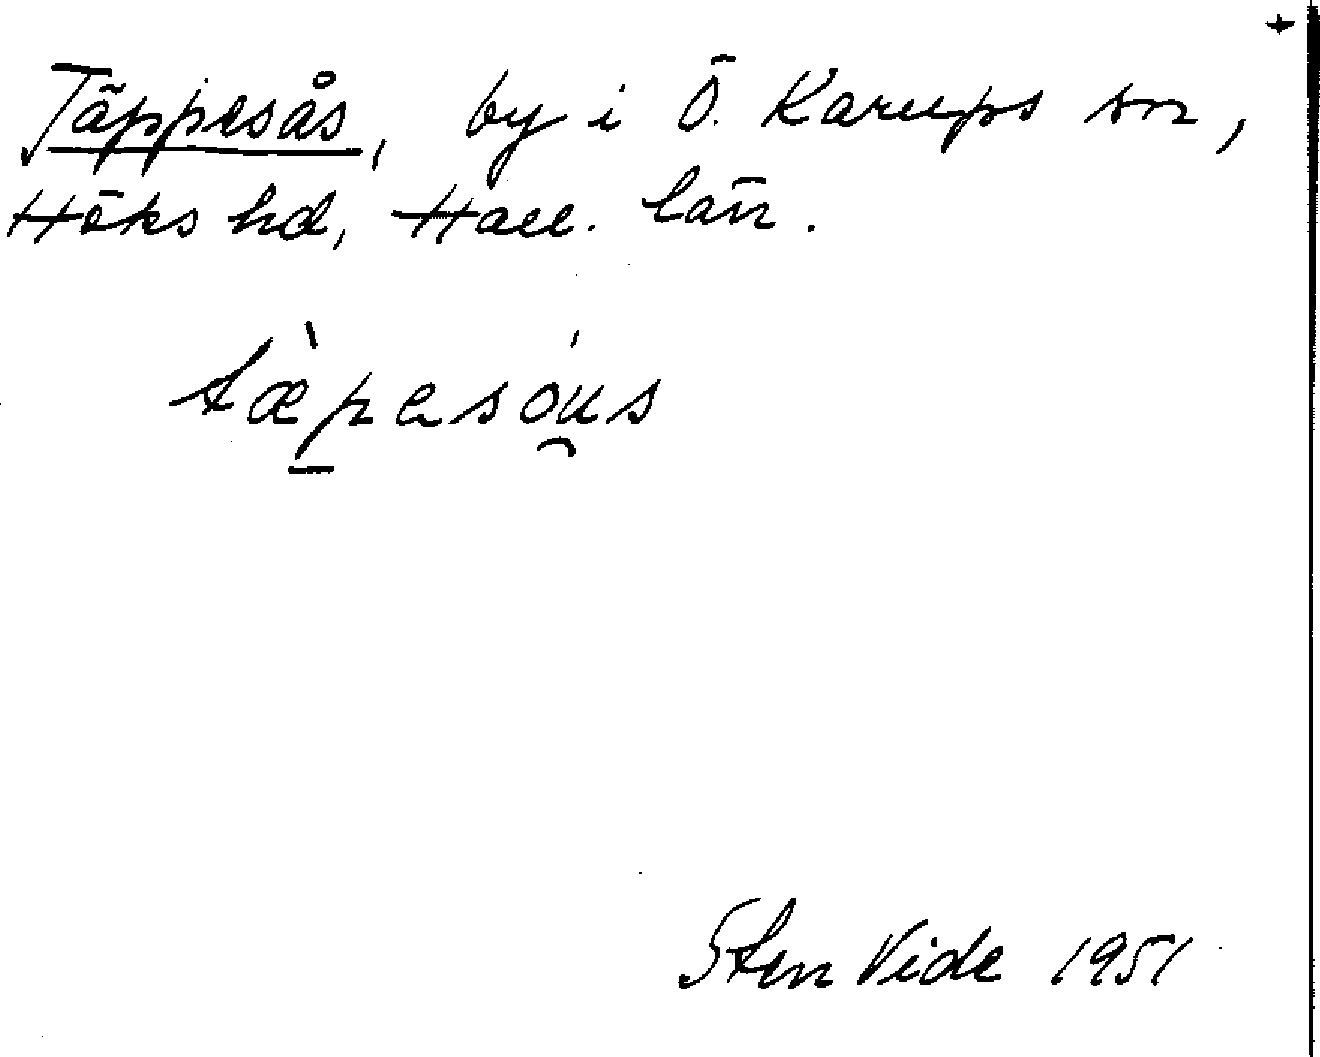 Täppesås, by i Ö. Karups sn,
Höks hd, Hall. län.
tæ̀pesóu̯s
Sten Vide 1951